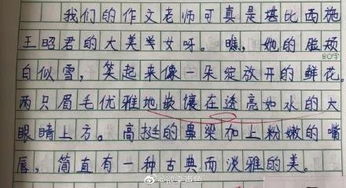 我们的作文老师可真是堪比西施
王昭君的大美女呀。瞧，她的脸颊
白似雪，笑起来像一朵绽放开的鲜花。
两只眉毛优雅地嵌镶在透亮如水的大
眼睛上方。高挺的鼻梁加上粉嫩的嘴
唇，简直有一种古典而淡雅的美。